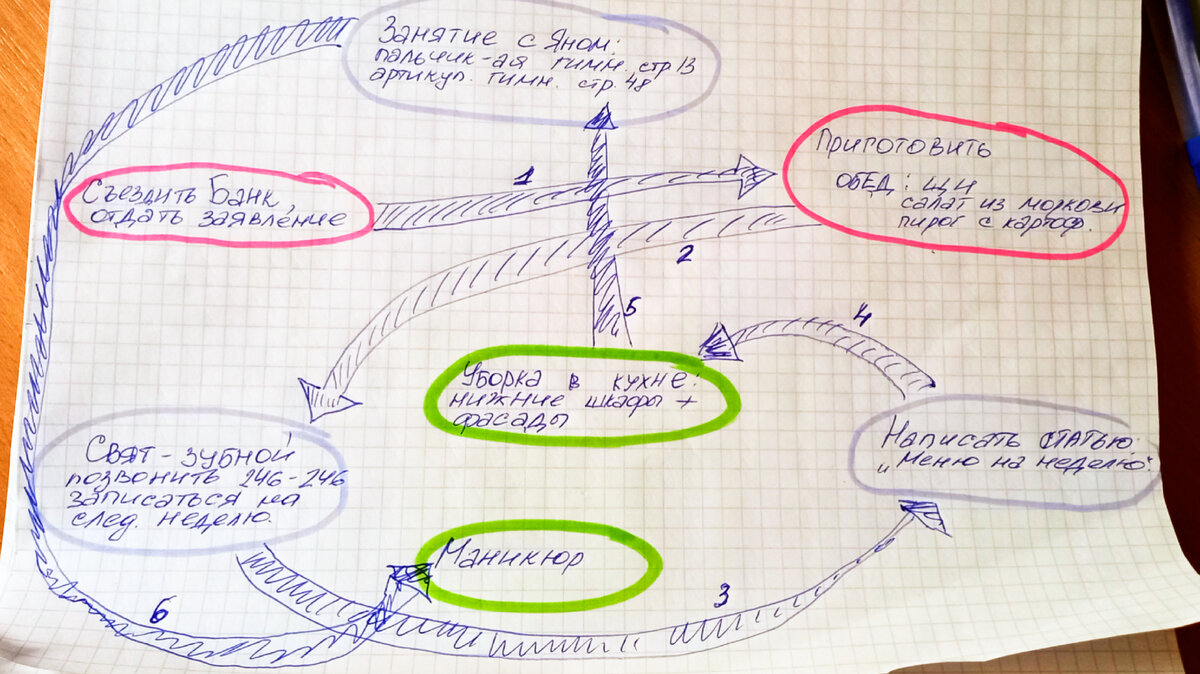 Занятие с Яном:
пальчик-ая гимн. стр 13
артикул. гимн. стр. 48
Приготовить
ОБЕД: щи
салат из моркови
пирог с картоф.
1
Съездить Банк
отдать заявление
2
5
4
Уборка в кухне:
нижние шкафы +
фасады
Написать статью:
"Меню на неделю"
Свят-зубной
позвонить 246-246
записаться на
след. неделю.
Маникюр
3
6